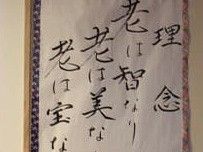 理念
老は智なり
老は美な
老は宝な